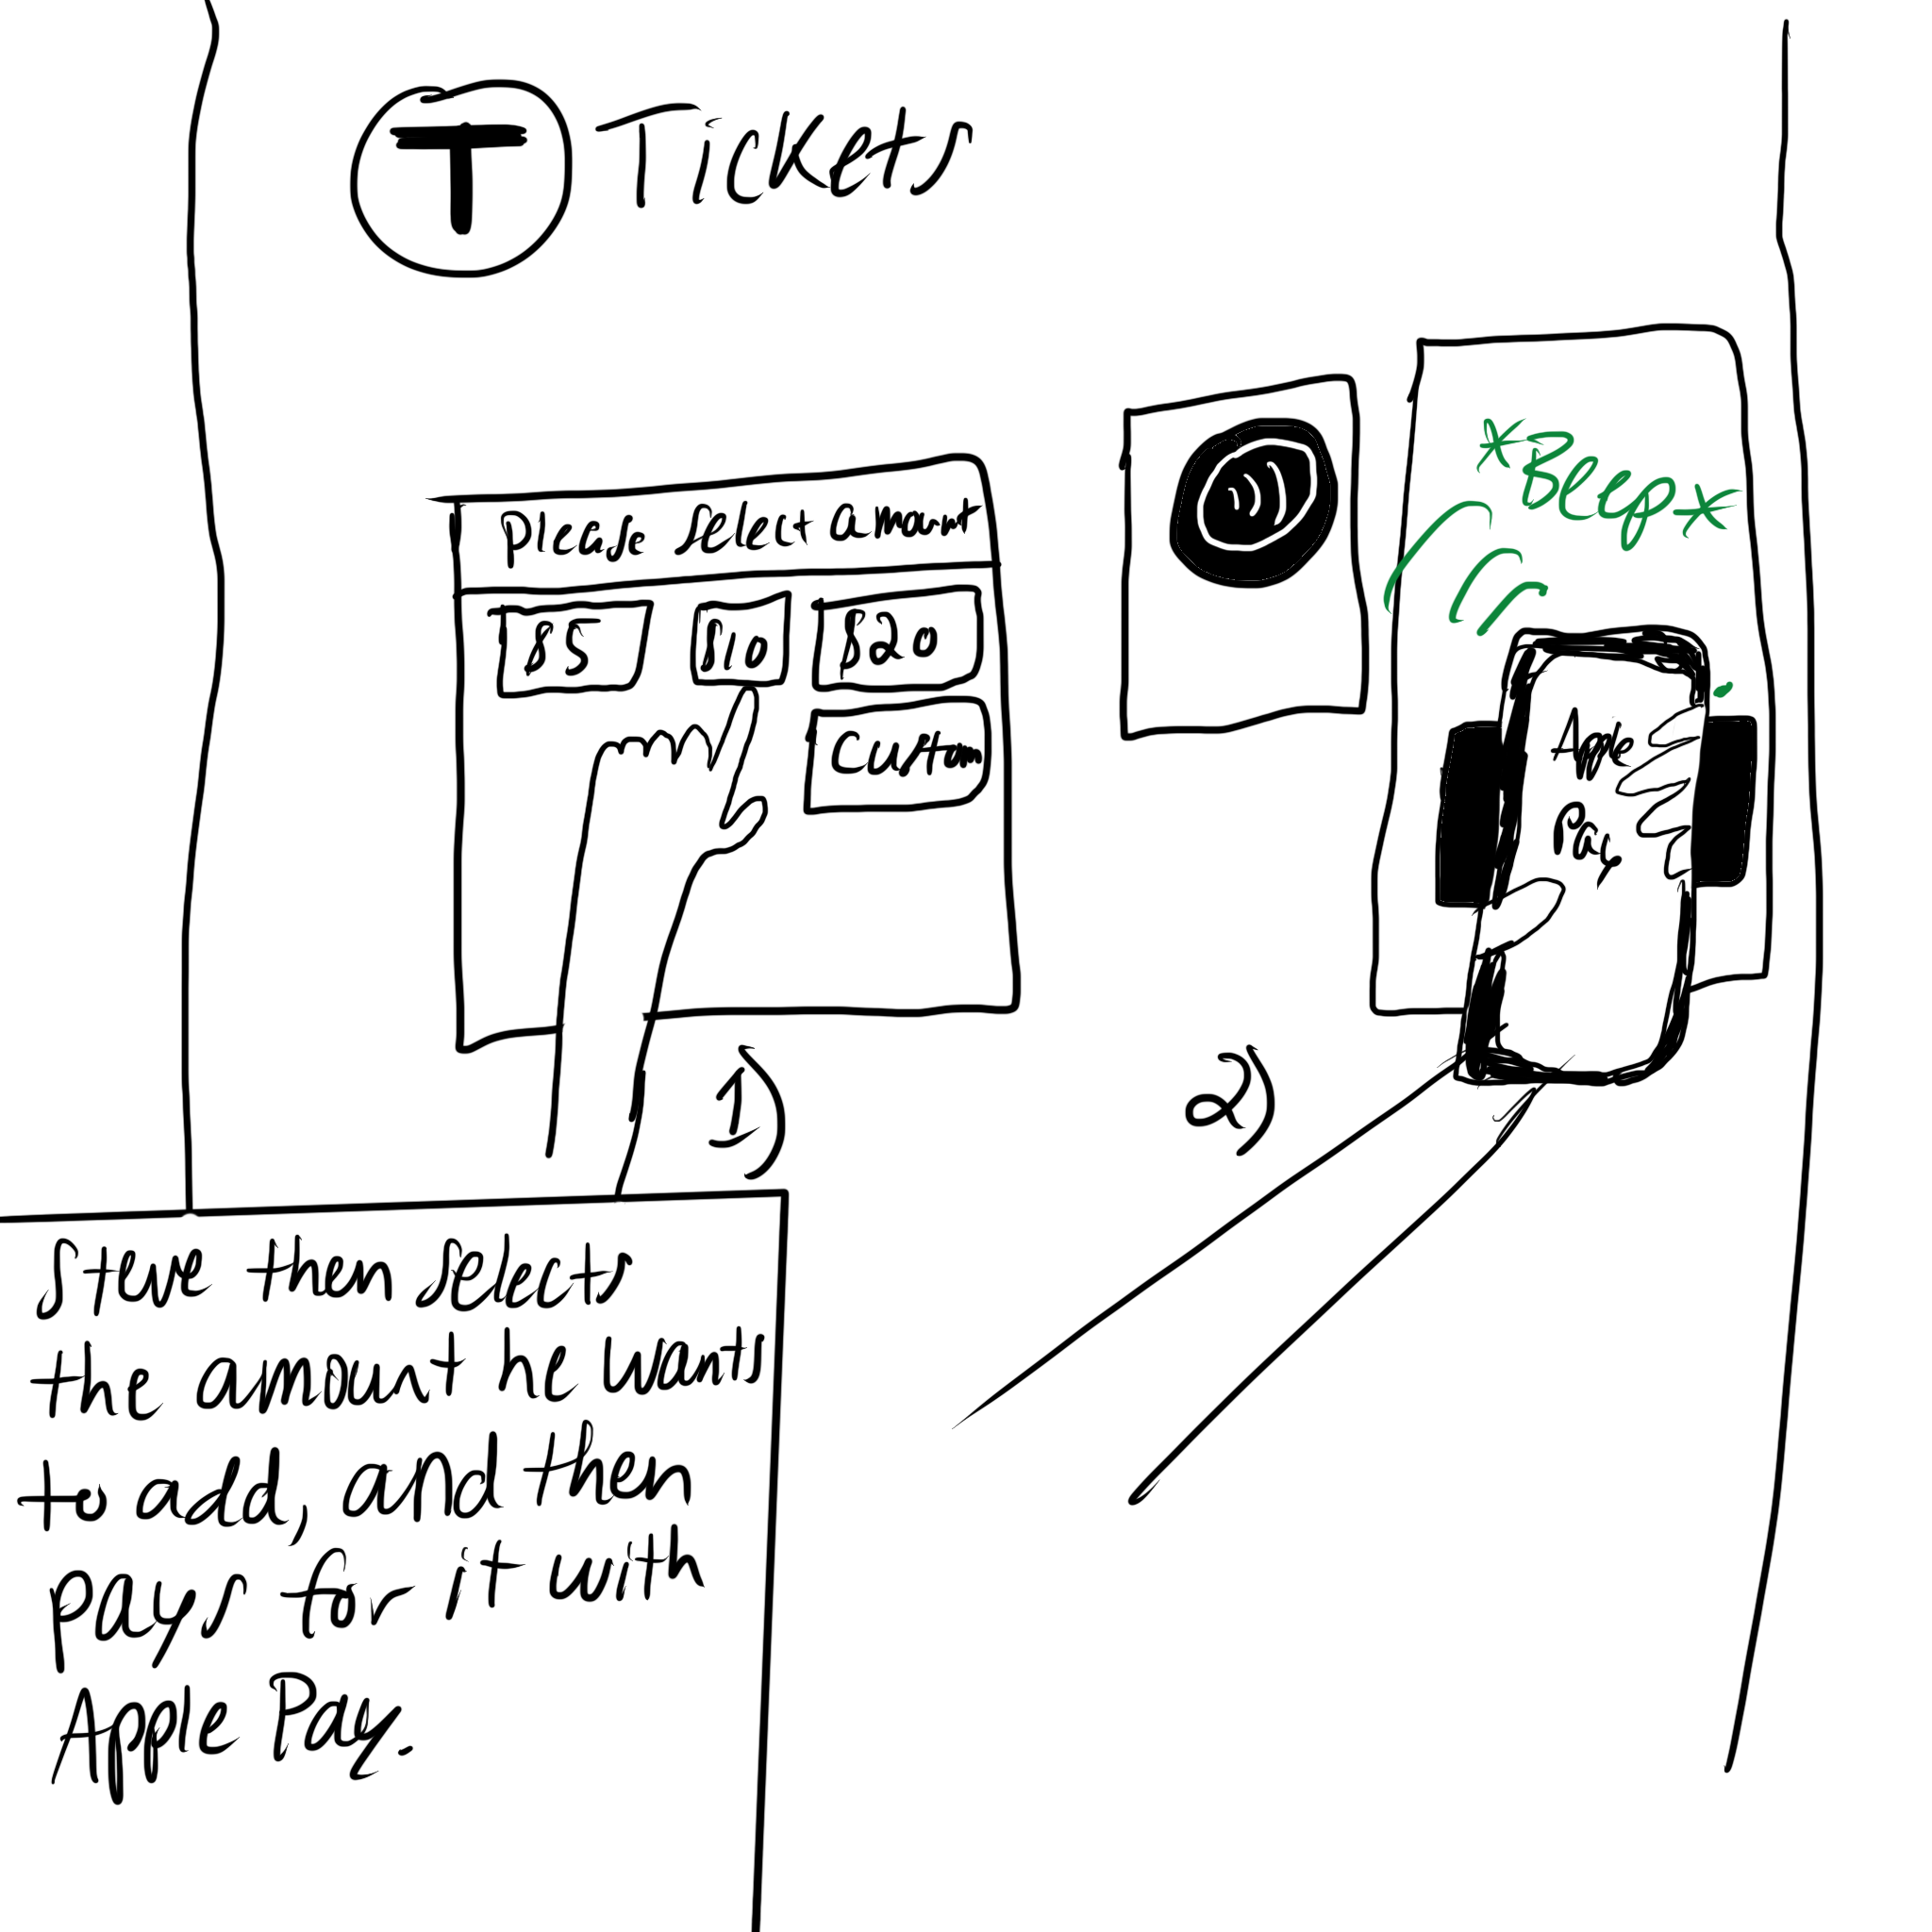 T Tickets
Please select amount
$5 $10 $20
Custom
*Beep*
Apple
Pay
1)
2)
Steve then selects
the amount he wants
to add, and then
pays for it with
Apple Pay.